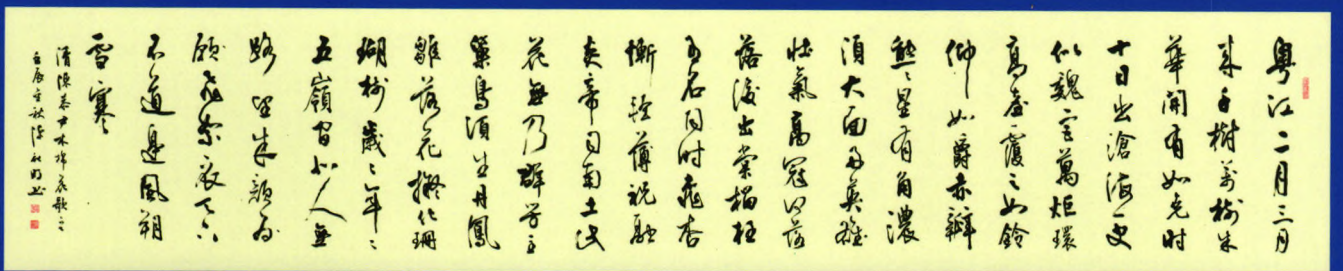 粵江二月三月
來千樹萬樹朱
華開有如尧时
十日出滄海更
似魏宮萬炬環
高臺覆之如鈴
仰如爵赤瓣
熊々星有角濃
須大面好英雄
壯氣高冠何落
落後出棠榴枉
有名同时桃杏
慚輕薄祝融
炎帝司南土此
花無乃群芳主
巢鳥須生丹鳳
雛落花擬化珊
瑚樹歲々年々
五嶺間北人無
路望朱顏為
願飛絮衣天下
不道邊風朔
雪寒
清陳恭尹木棉花歌之
壬辰金秋书